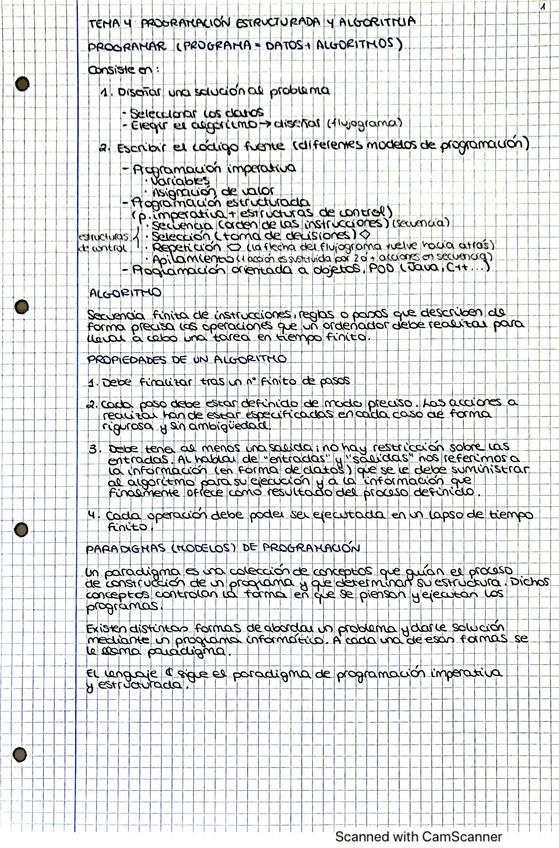 1
TEMA 4 PROGRAMACIÓN ESTRUCTURADA Y ALGORITMIA
PROGRAMAR (PROGRAMA = DATOS + ALGORITMOS)
Consiste en:
1. Diseñar una solución al problema
- Seleccionar los datos
- Elegir el algoritmo → diseñar (flujograma)
2. Escribir el código fuente (diferentes modelos de programación)
- Programación imperativa
· Variables
· Asignación de valor
- Programación estructurada
(p. imperativa + estructuras de control)
· Secuencia (orden de las instrucciones) (secuencia)
estructuras de control · Selección (toma de decisiones) ◇
· Repetición (la flecha del flujograma vuelve hacia atrás)
· Apilamiento (1 acción es sustituida por 2 o + acciones en secuencia)
- Programación orientada a objetos, POO (Java, C++...)
ALGORITMO
Secuencia finita de instrucciones, reglas o pasos que describen de
forma precisa las operaciones que un ordenador debe realizar para
llevar a cabo una tarea en tiempo finito.
PROPIEDADES DE UN ALGORITMO
1. Debe finalizar tras un nº finito de pasos
2. Cada paso debe estar definido de modo preciso. Las acciones a
realizar han de estar especificadas en cada caso de forma
rigurosa y sin ambigüedad.
3. Debe tener al menos una salida; no hay restricción sobre las
entradas. Al hablar de "entradas" y "salidas" nos referimos a
la información (en forma de datos) que se le debe suministrar
al algoritmo para su ejecución y a la información que
finalmente ofrece como resultado del proceso definido.
4. Cada operación debe poder ser ejecutada en un lapso de tiempo
finito.
PARADIGMAS (MODELOS) DE PROGRAMACIÓN
Un paradigma es una colección de conceptos que guían el proceso
de construcción de un programa y que determinan su estructura. Dichos
conceptos controlan la forma en que se piensan y ejecutan los
programas.
Existen distintas formas de abordar un problema y darle solución
mediante un programa informático. A cada una de esas formas se
le llama paradigma.
El lenguaje C sigue el paradigma de programación imperativa
y estructurada.
Scanned with CamScanner